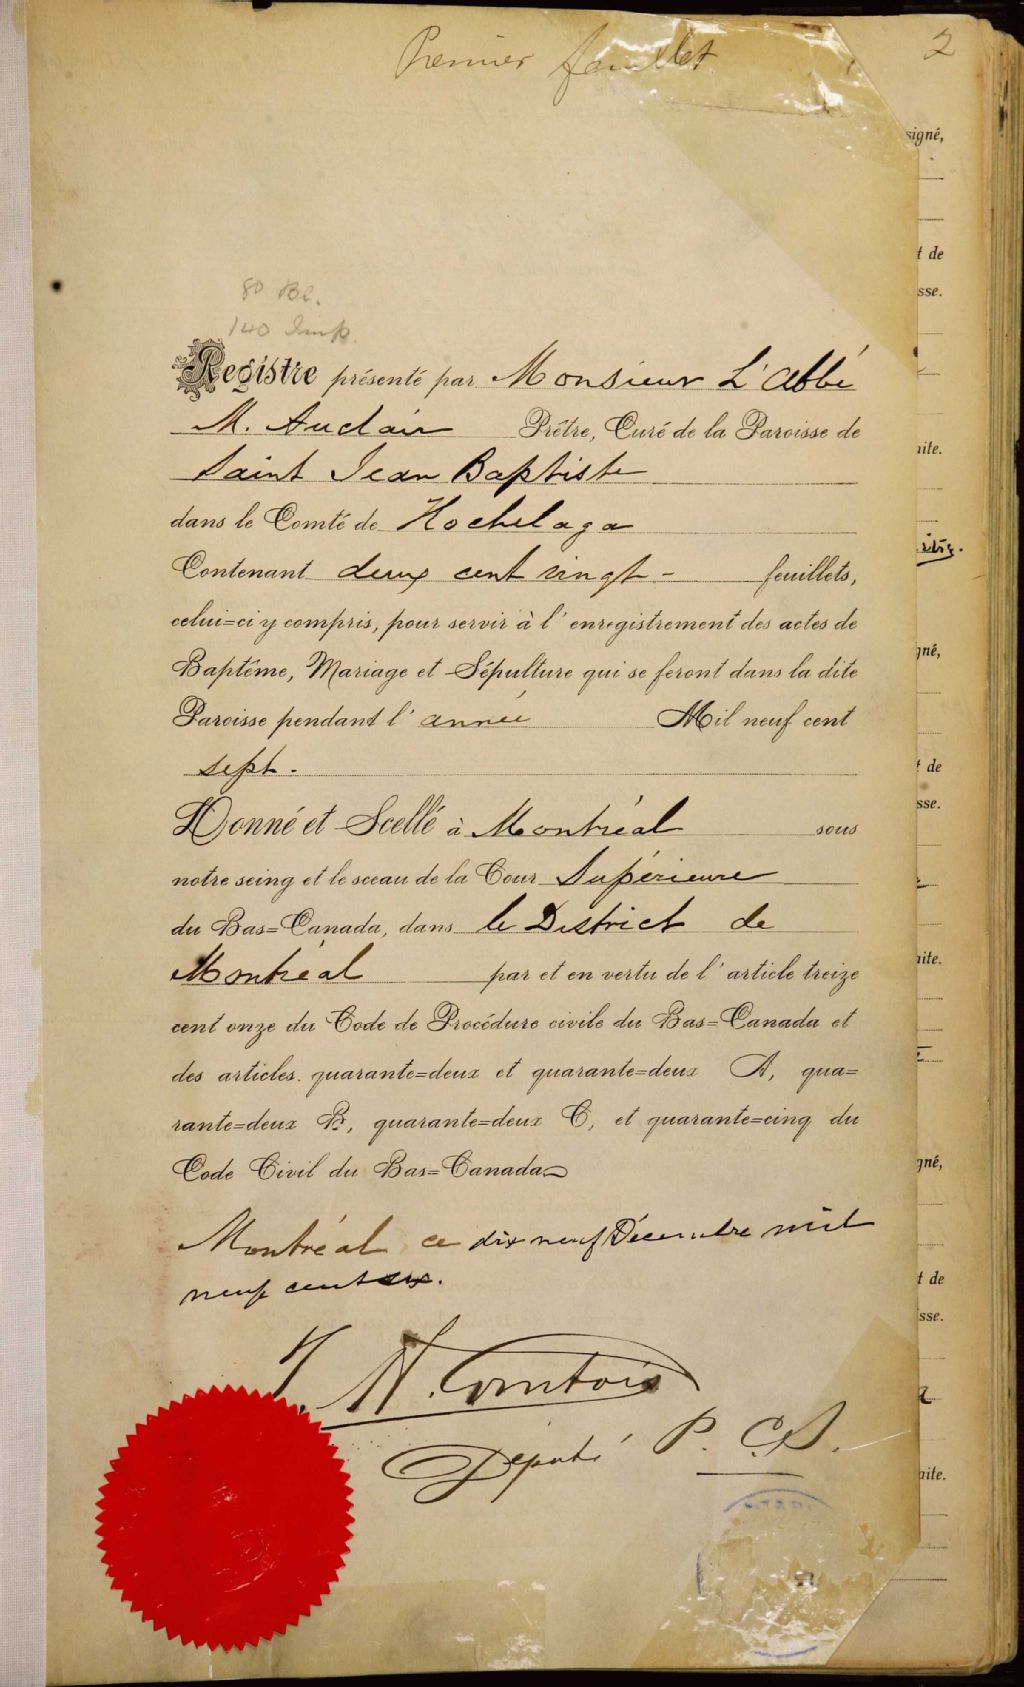 Premier feuillet
2
80 Bl.
140 Imp.
Registre présenté par Monsieur L'Abbé
M. Auclair Prêtre, Curé de la Paroisse de
Saint Jean Baptiste
dans le Comté de Hochelaga
Contenant deux cent vingt - feuillets,
celui=ci y compris, pour servir à l'enregistrement des actes de
Baptême, Mariage et Sépulture qui se feront dans la dite
Paroisse pendant l'année Mil neuf cent
sept.
Donné et Scellé à Montréal sous
notre seing et le sceau de la Cour Supérieure
du Bas=Canada, dans le District de
Montréal par et en vertu de l'article treize
cent onze du Code de Procédure civile du Bas=Canada et
des articles quarante=deux et quarante=deux A, qua=
rante=deux B, quarante=deux C, et quarante=cinq du
Code Civil du Bas=Canada
Montréal ce dix neuf Décembre mil
neuf cent six.
J. N. Comtois
Député P. C. S.
signé,
t de
sse.
ite.
gné,
t de
sse.
ite.
gné,
t de
sse.
ite.